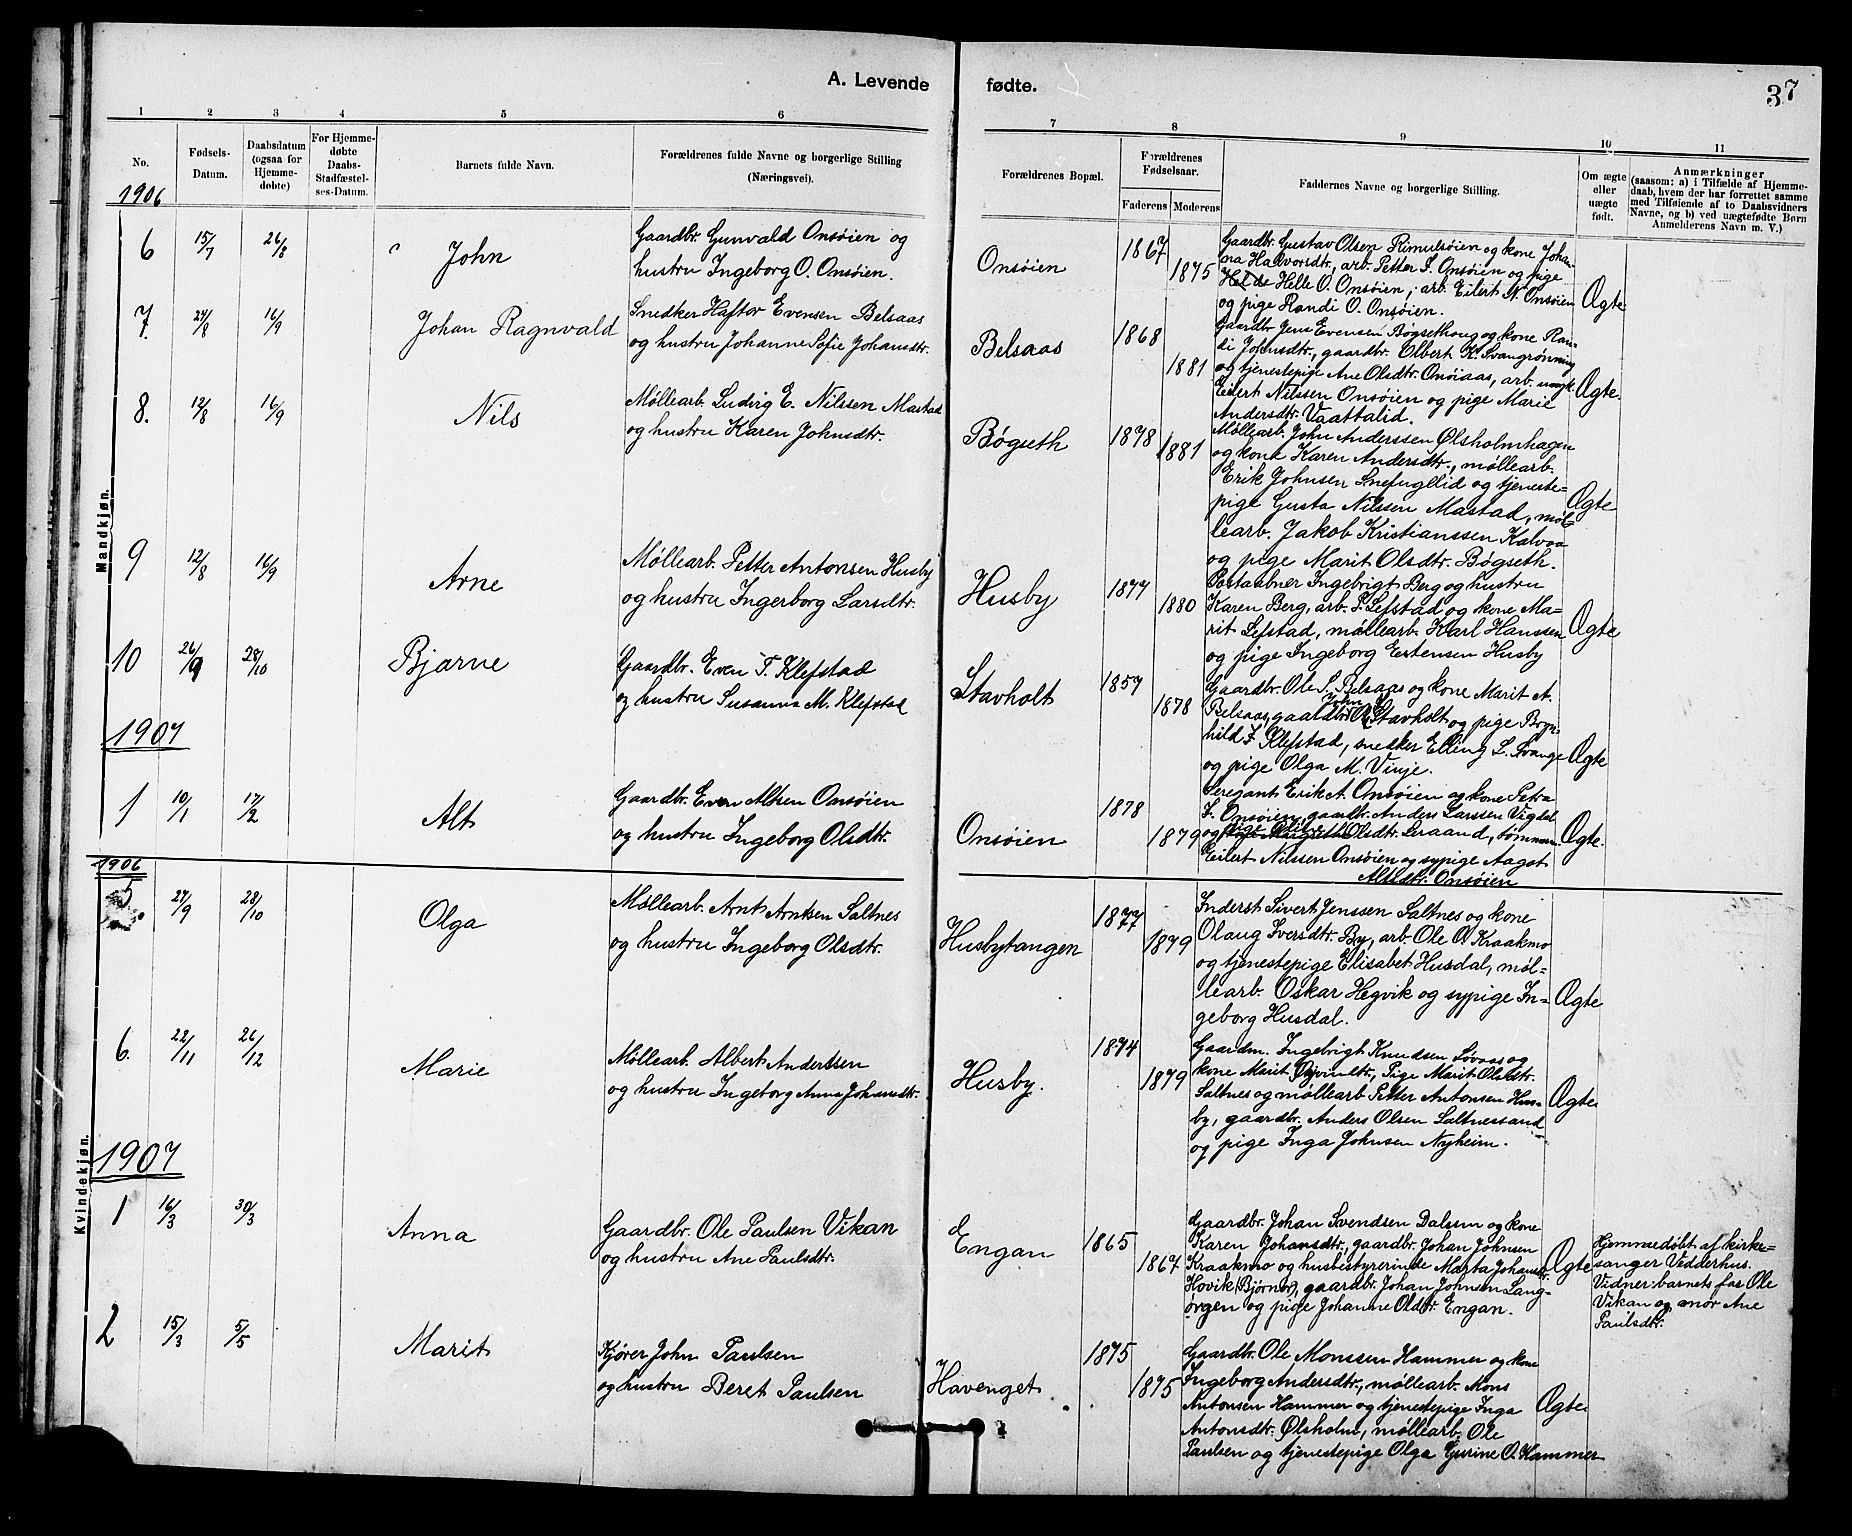 A. Levende fødte.
37
1 2 3 4 5 6 7 8 9 10 11
No.
Fødsels-
Datum.
Daabsdatum
(ogsaa for
Hjemme-
døbte)
For Hjemme-
døbte
Daabs-
Stadfæstel-
ses-Datum.
Barnets fulde Navn.
Forældrenes fulde Navne og borgerlige Stilling
(Næringsvei).
Forældrenes Bopæl.
Forældrenes
Fødselsaar.
Faderens Moderens
Faddernes Navne og borgerlige Stilling.
Om ægte
eller
uægte
født.
Anmærkninger
(saasom: a) i Tilfælde af Hjemme-
daab, hvem der har forrettet samme
med Tilføiende af to Daabsvidners
Navne, og b) ved uægtefødte Børn
Anmelderens Navn m. V.)
Mandkjøn.
1906
6 15/7 26/8 John
Gaardbr. Gunvald Onsøien og
hustru Ingeborg O. Onsøien.
Onsøien 1867 1875
Gaardbr. Gustav Olsen Rimulsøien og kone Johan-
na Halvorsdtr., arb. Petter S. Onsøien og pige
Helle O. Onsøien, arb. Eilert N. Onsøien
og pige Randi O. Onsøien.
Ægte
7. 24/8 16/9 Johan Ragnvald
Snedker Haftor Evensen Belsaas
og hustru Johanne Sofie Johansdtr.
Belsaas 1868 1881
Gaardbr. Jens Evensen Bøgsethoug og kone Ran-
di Johnsdtr., gaardbr. Olbert K. Svangrønning
og tjenestepige Ane Olsdtr. Onsøiaas, arb. ungk.
Eilert Nilssen Onsøien og pige Marie
Andersdtr. Vaattalid.
Ægte.
8. 12/8 16/9 Nils
Møllearb. Ludvig E. Nilssen Mastad
og hustru Karen Johnsdtr.
Bøgseth 1878 1881
Møllearb. John Anderssen Ølsholmhagen
og kone Karen Andersdtr., møllearb.
Erik Johnsen Snefugllid og tjeneste-
pige Gusta Nilssen Mastad, møl-
learb. Jakob Kristianssen Kalvaa
og pige Marit Olsdtr. Bøgseth.
Ægte
9 12/8 16/9 Arne
Møllearb. Petter Antonsen Husby
og hustru Ingerborg Larsdtr.
Husby 1877 1880
Postaabner Ingebrigt Berg og hustru
Karen Berg, arb. P. Lefstad og kone Ma-
rit Lefstad, møllearb. Karl Hanssen
og pige Ingeborg Estensen Husby
Ægte
10 26/9 28/10 Bjarne
Gaardbr. Even T. Klefstad
og hustru Susanna M. Klefstad
Stavholt 1857 1878
Gaardbr. Ole S. Belsaas og kone Marit A.
Belsaas, gaardbr. Stavholt og pige Bryn-
hild F. Klefstad, snedker Elling L. Svange
og pige Olga M. Vinje.
Ægte
1907
1 10/1 17/2 Alt
Gaardbr. Even Altsen Onsøien
og hustru Ingeborg Olsdtr.
Onsøien 1878 1879
Seregant Erik A. Onsøien og kone Petra
F. Onsøien, gaardbr. Anders Larssen Vigdal
og pige Olsdtr. Leraand, tømmerm.
Eilert Nilssen Onsøien og sypige Aagot
Altsdtr. Onsøien
Ægte.
Kvindekjøn.
1906
5 27/9 28/10 Olga
Møllearb. Arnt Arntsen Saltnes
og hustru Ingeborg Olsdtr.
Husbytangen 1877 1879
Inderst Sivert Jenssen Saltnes og kone
Olaug Iversdtr. By, arb. Ole O. Kraakmo
og tjenestepige Elisabet Husdal, møl-
learb. Oskar Hegvik og sypige In-
geborg Husdal.
Ægte
6. 22/11 26/12 Marie
Møllearb. Albert Anderssen
og hustru Ingeborg Anna Johansdtr.
Husby. 1874 1879
Gaardm. Ingebrigt Knudsen Løvaas og
kone Marit Eivindtr., Pige Marit Olsdtr.
Saltnes og møllearb Petter Antonsen Hus-
by, gaardbr. Anders Olsen Saltnessand
og pige Inga Johnsen Nyheim.
Ægte.
1907
1 16/3 30/3 Anna
Gaardbr. Ole Paulsen Vikan
og hustru Ane Paulsdtr.
Engan 1865 1867
Gaardbr. Johan Svendsen Dalsun og kone
Karen Johansdtr., gaardbr. Johan Johnsen
Kraakmo og husbestyrerinde Marta Johansdtr.
Hovik (Bjørnør), gaardbr. Johan Johnsen Lang-
ørgen og pige Johanne Olsdtr. Engan.
Ægte
Hjemmedøbt af kirke-
sanger Vidderhus.
Vidner: barnets far Ole
Vikan og mor Ane
Paulsdtr.
2 15/3 5/5 Marit
Kjører John Paulsen
og hustru Beret Paulsen
Havenget 1875 1875
Gaardbr. Ole Monssen Hammer og kone
Ingeborg Andersdtr., møllearb. Mons
Antonsen Hammer og tjenestepige Inga
Antonsdtr. Ølsholm, møllearb. Ole
Paulsen og tjenestepige Olga Gurine O. Hammer
Ægte.